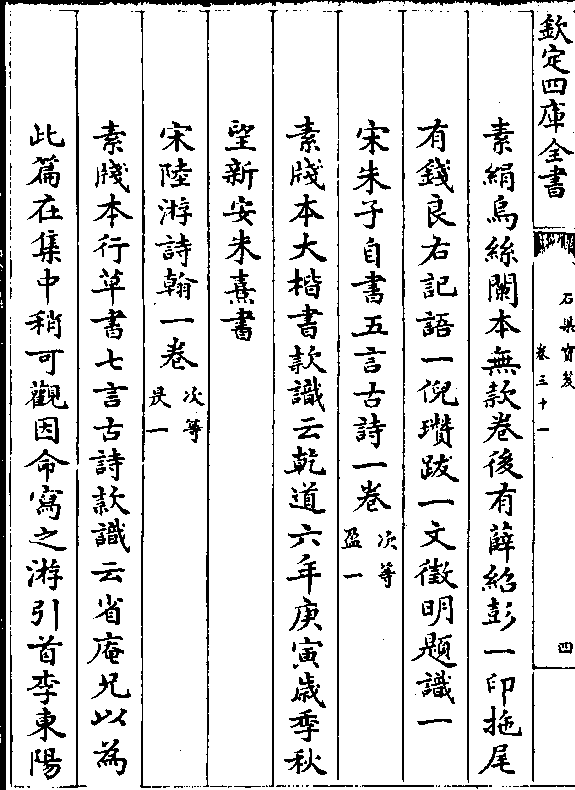 欽定四庫全書
石渠寶笈
卷三十一
四
素絹烏絲闌本無款卷後有薛紹彭一印拖尾
有錢良右記語一倪瓚跋一文徵明題識一
宋朱子自書五言古詩一卷
次等
盈一
素牋本大楷書款識云乾道六年庚寅歲季秋
望新安朱熹書
宋陸游詩翰一卷
次等
昃一
素牋本行草書七言古詩款識云省庵兄以為
此篇在集中稍可觀因命寫之游引首李東陽